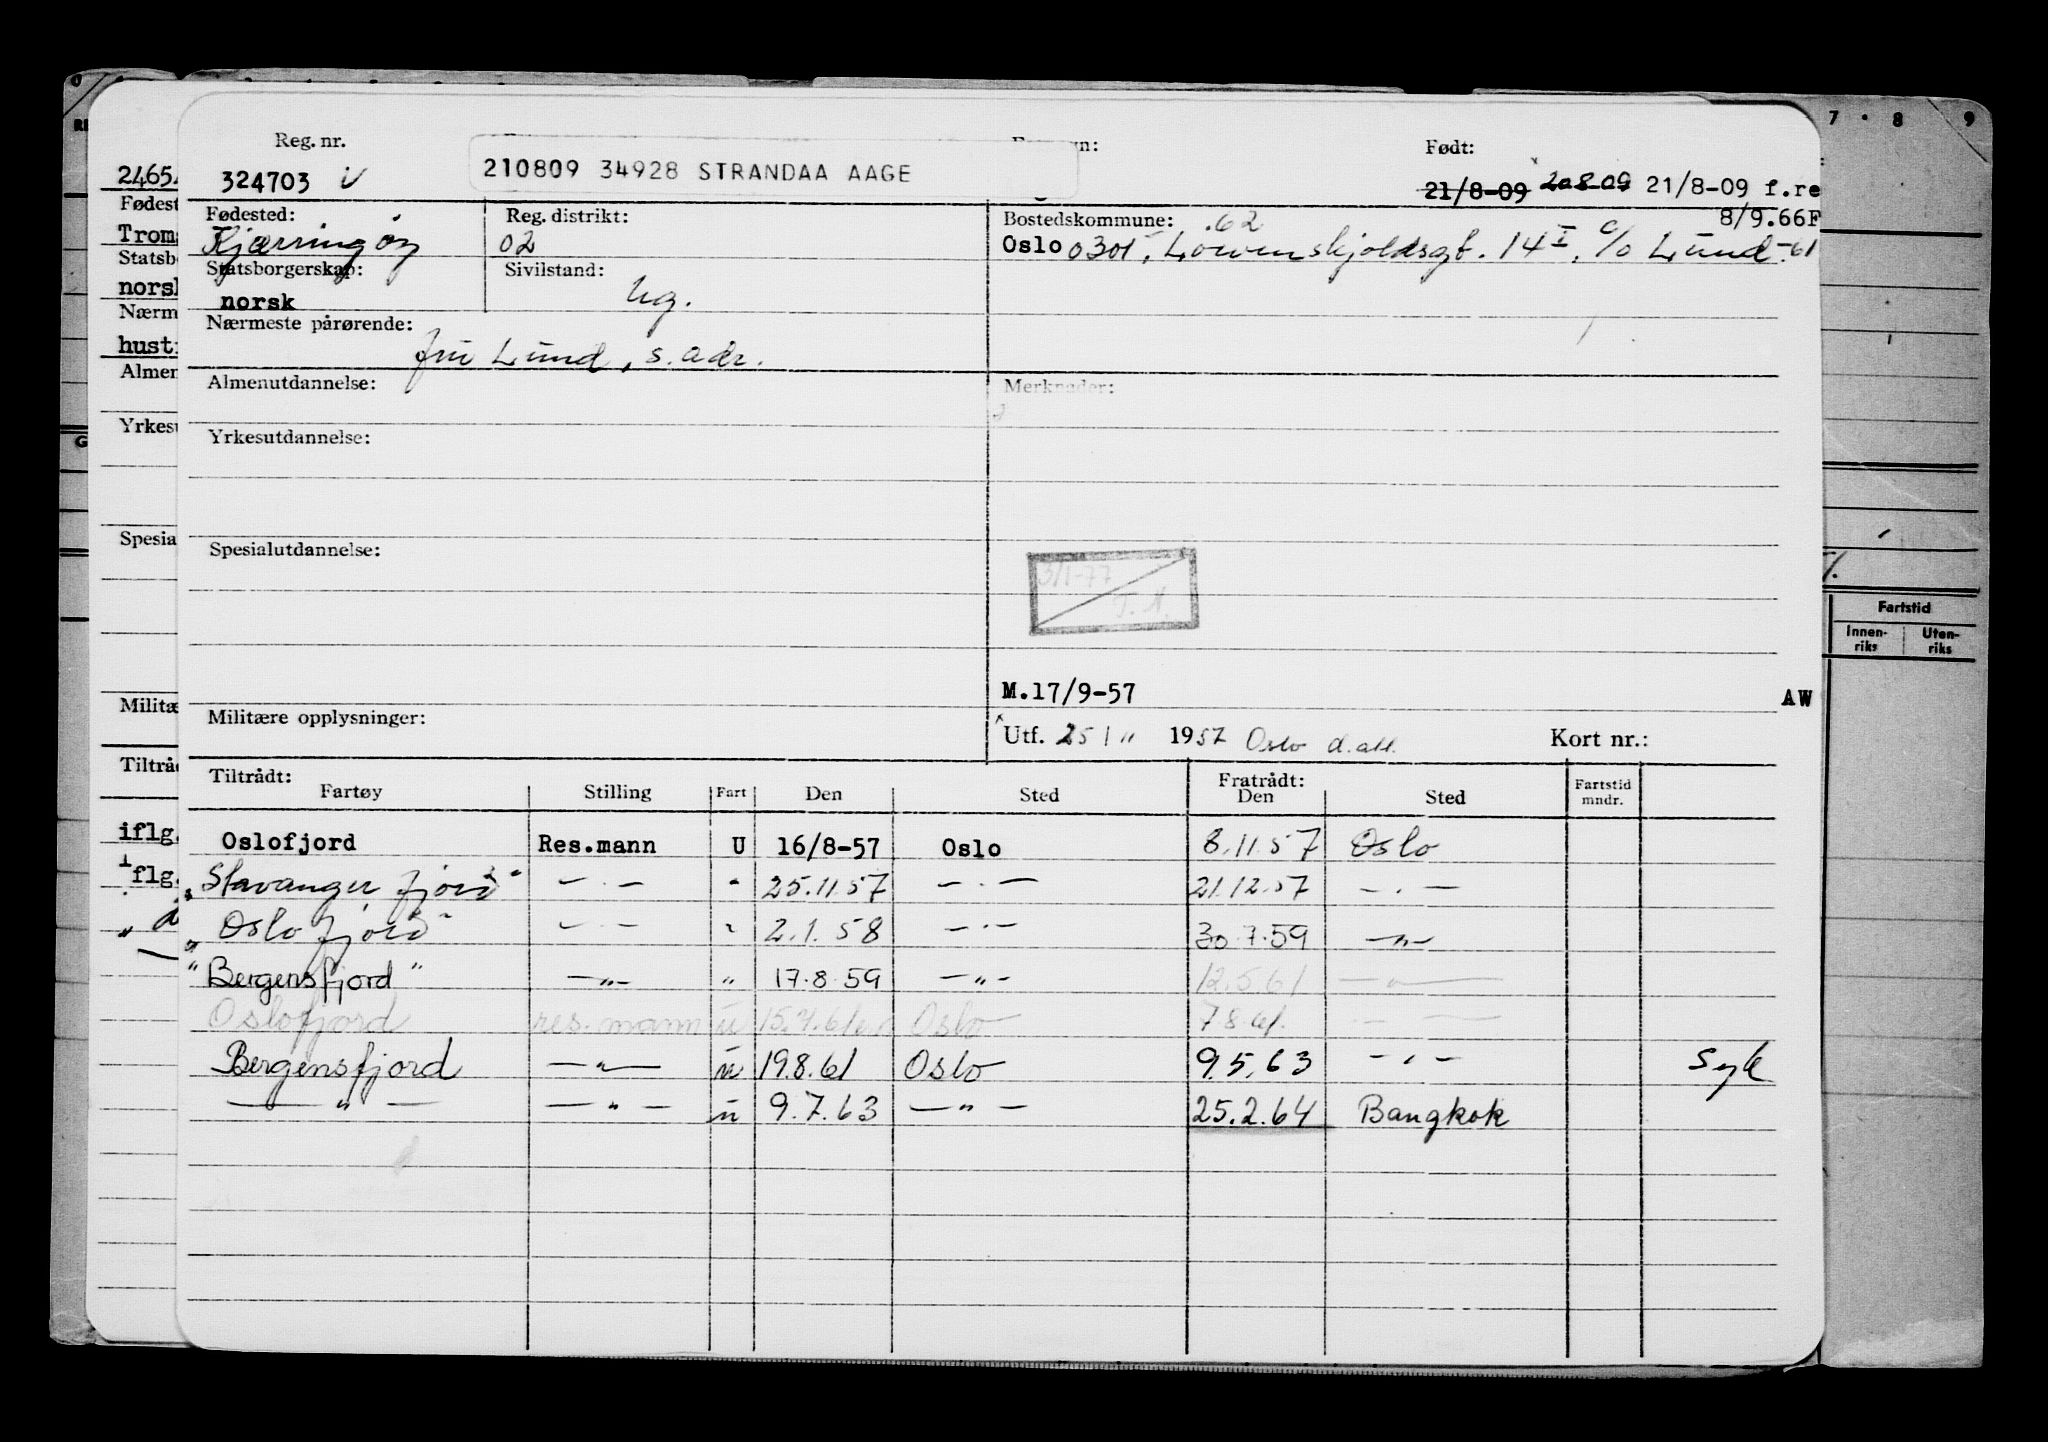 7 · 8 9
Reg. nr. Født:
210809 34928 STRANDAA AAGE
324703 21/8-09 20-8-09 21/8-09 f.re
8/9.66F
Fødested: Reg. distrikt: Bostedskommune: .62
Kjærringøy 02 Oslo 0301, Løvenskjoldsgt. 14 I, c/o Lund -61
Statsborgerskap: Sivilstand:
norsk Ug.
Nærmeste pårørende:
fru Lund, s. adr.
Almenutdannelse: Merknader:
Yrkesutdannelse:
Spesialutdannelse:
3/1-77
T. N.
M.17/9-57 AW
Militære opplysninger: Utf. 25/11 1957 Oslo d.att. Kort nr.:
Tiltrådt: Fratrådt:
Fartøy Stilling Fart Den Sted Den Sted Fartstid mndr.
Oslofjord Res.mann U 16/8-57 Oslo 8.11.57 Oslo
"Stavangerfjord" — " — " 25.11.57 — " — 21.12.57 — " —
"Oslofjord" — " — " 2.1.58 — " — 30.7.59 — " —
"Bergensfjord" — " — " 17.8.59 — " — 12.5.61 — " —
Oslofjord res.mann u Oslo 7.8.61. — —
Bergensfjord — " — u 19.8.61 Oslo 9.5.63 — " — Syk
— " — — " — u 9.7.63 — " — 25.2.64 Bangkok
Fartstid
Innen-riks Uten-riks
2465
Fødest
Troms
Statsbo
norsk
Nærm
hustr
Almen
Yrkesu
Spesia
Militæ
Tiltråd
iflg.
iflg.